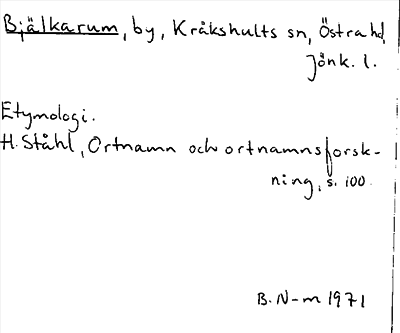 Bjälkarum, by, Kråkshults sn, Östra hd,
Jönk. l.
Etymologi.
H. Ståhl, Ortnamn och ortnamnsforsk-
ning, s. 100.
B. N-m 1971